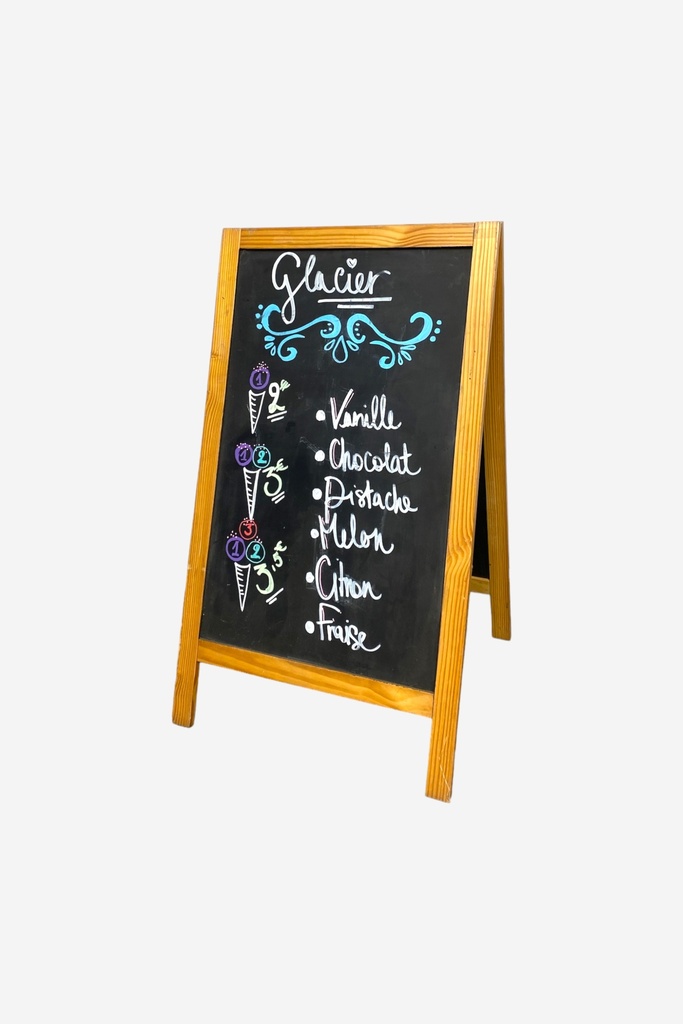 Glacier
1
2€
1 2
3€
3
1 2
3,5€
• Vanille
• Chocolat
• Pistache
• Melon
• Citron
• Fraise